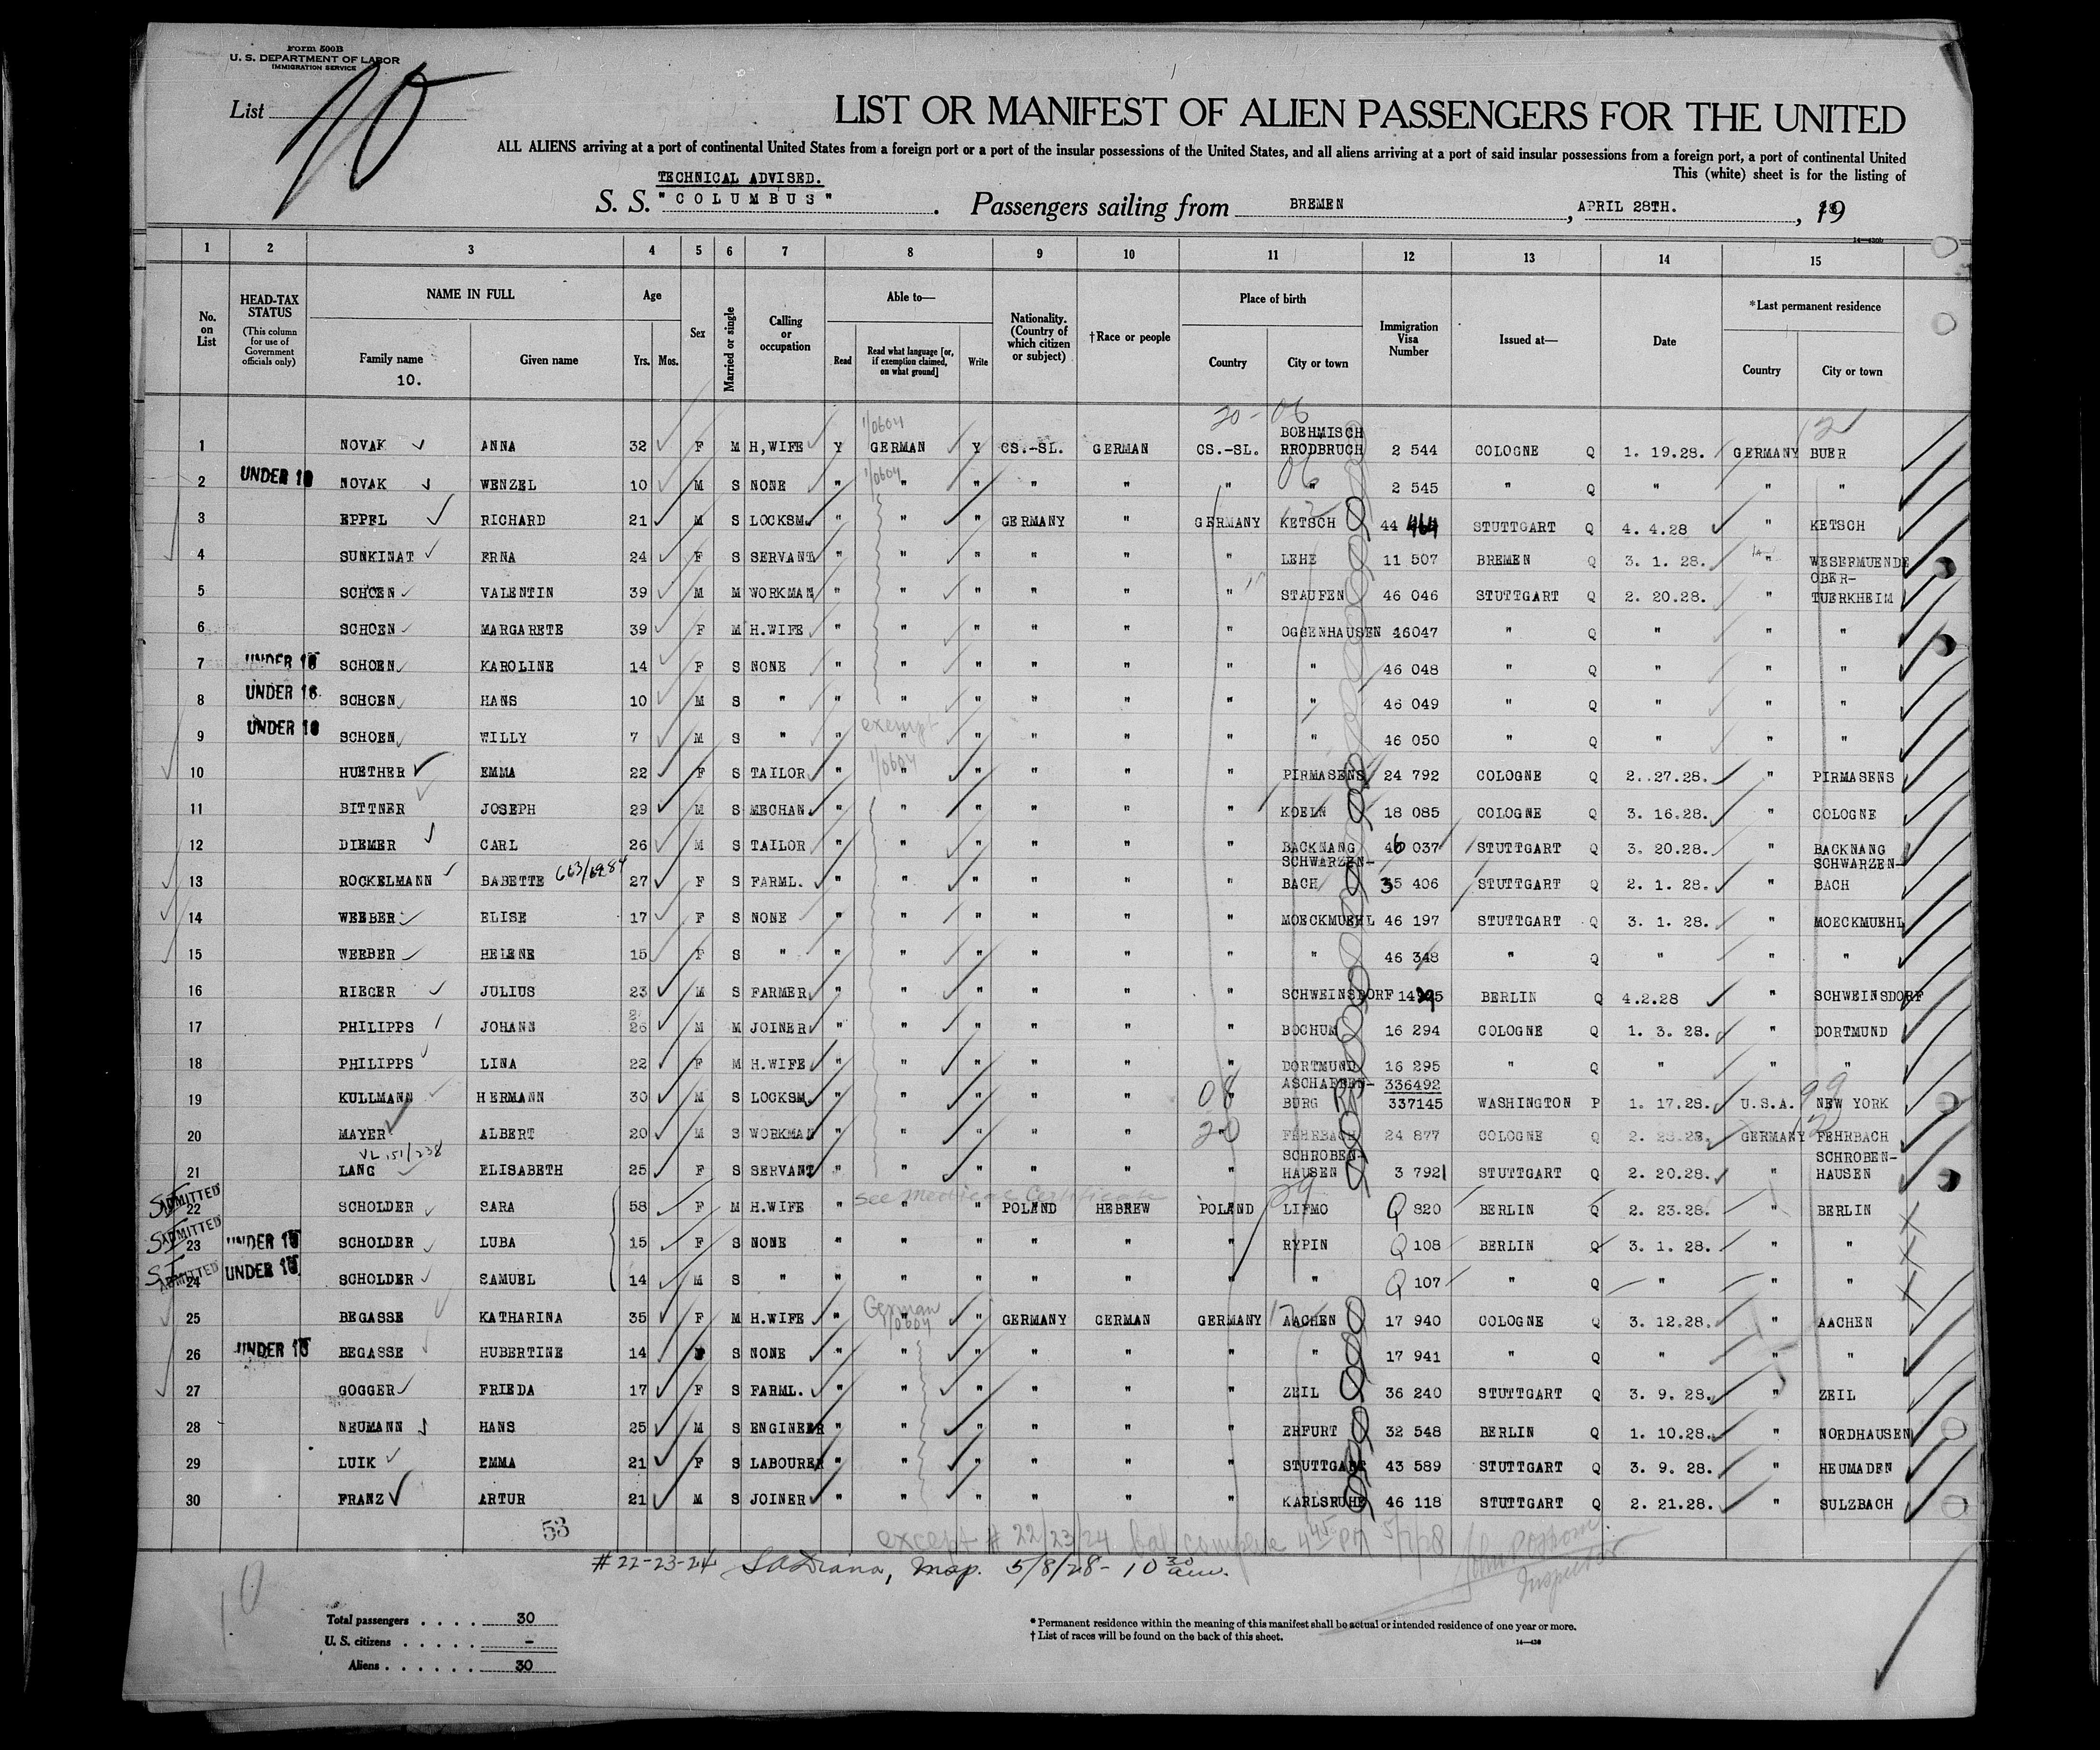 Form 500B
U. S. DEPARTMENT OF LABOR
IMMIGRATION SERVICE
List 10
LIST OR MANIFEST OF ALIEN PASSENGERS FOR THE UNITED
ALL ALIENS arriving at a port of continental United States from a foreign port or a port of the insular possessions of the United States, and all aliens arriving at a port of said insular possessions from a foreign port, a port of continental United
This (white) sheet is for the listing of
TECHNICAL ADVISED.
S. S. "COLUMBUS". Passengers sailing from BREMEN, APRIL 28TH., 1928.
14—430b
1 2 3 4 5 6 7 8 9 10 11 12 13 14 15
No. on List
HEAD-TAX STATUS (This column for use of Government officials only)
NAME IN FULL
Family name
10.
Given name
Age
Yrs. Mos.
Sex
Married or single
Calling or occupation
Able to—
Read
Read what language [or, if exemption claimed, on what ground]
Write
Nationality. (Country of which citizen or subject)
†Race or people
Place of birth
Country
City or town
Immigration Visa Number
Issued at—
Date
*Last permanent residence
Country
City or town
20-06 12
1 NOVAK ANNA 32 F M H,WIFE Y GERMAN Y CS.-SL. GERMAN CS.-SL. BOEHMISCH RRODBRUCH 2 544 COLOGNE Q 1. 19.28. GERMANY BUER
2 UNDER 16 NOVAK WENZEL 10 M S NONE " " " " " " " 2 545 " Q " " "
3 EPPEL RICHARD 21 M S LOCKSM. " " " GERMANY " GERMANY KETSCH 44 464 STUTTGART Q 4. 4.28 " KETSCH
4 SUNKINAT ERNA 24 F S SERVANT " " " " " " LEHE 11 507 BREMEN Q 3. 1. 28. " WESERMUENDE
5 SCHOEN VALENTIN 39 M M WORKMAN " " " " " " STAUFEN 46 046 STUTTGART Q 2. 20.28. " OBER-TUERKHEIM
6 SCHOEN MARGARETE 39 F M H.WIFE " " " " " " OGGENHAUSEN 46047 " Q " " "
7 UNDER 16 SCHOEN KAROLINE 14 F S NONE " " " " " " " 46 048 " Q " " "
8 UNDER 16 SCHOEN HANS 10 M S " " " " " " " " 46 049 " Q " " "
9 UNDER 16 SCHOEN WILLY 7 M S " " exempt " " " " " " 46 050 " Q " " "
10 HUETHER EMMA 22 F S TAILOR " " " " " " PIRMASENS 24 792 COLOGNE Q 2. 27.28. " PIRMASENS
11 BITTNER JOSEPH 29 M S MECHAN. " " " " " " KOELN 18 085 COLOGNE Q 3. 16.28. " COLOGNE
12 DIEMER CARL 26 M S TAILOR " " " " " " BACKNANG 46 037 STUTTGART Q 3. 20.28. " BACKNANG
13 ROCKELMANN BABETTE 27 F S FARML. " " " " " " SCHWARZEN-BACH 35 406 STUTTGART Q 2. 1. 28. " SCHWARZEN-BACH
14 WEEBER ELISE 17 F S NONE " " " " " " MOECKMUEHL 46 197 STUTTGART Q 3. 1. 28. " MOECKMUEHL
15 WEEBER HELENE 15 F S " " " " " " " " 46 348 " Q " " "
16 RIEGER JULIUS 23 M S FARMER " " " " " " SCHWEINSDORF BERLIN Q 4.2.28 " SCHWEINSDORF
17 PHILIPPS JOHANN 26 M M JOINER " " " " " " BOCHUM 16 294 COLOGNE Q 1. 3. 28. " DORTMUND
18 PHILIPPS LINA 22 F M H.WIFE " " " " " " DORTMUND 16 295 " Q " " "
19 KULLMANN HERMANN 30 M S LOCKSM. " " " " " 08 " ASCHAFFEN-BURG 336492 337145 WASHINGTON P 1. 17.28. U.S.A. 99 NEW YORK
20 MAYER ALBERT 20 M S WORKMAN " " " " " 20 " FEHRBACH 24 877 COLOGNE Q 2. 28.28. GERMANY FEHRBACH
VL 151/238
21 LANG ELISABETH 25 F S SERVANT " " " " " " SCHROBEN-HAUSEN 3 792 STUTTGART Q 2. 20.28. " SCHROBEN-HAUSEN
See medical Certificate
SI ADMITTED 22 SCHOLDER SARA 58 F M H.WIFE " " " POLAND HEBREW POLAND LIPMO Q 820 BERLIN Q 2. 23.28. " BERLIN
SI ADMITTED 23 UNDER 16 SCHOLDER LUBA 15 F S NONE " " " " " " RYPIN Q 108 BERLIN Q 3. 1. 28. " "
SI ADMITTED 24 UNDER 16 SCHOLDER SAMUEL 14 M S " " " " " " " " Q 107 " Q " " "
25 BEGASSE KATHARINA 35 F M H.WIFE " German " " GERMANY GERMAN GERMANY AACHEN 17 940 COLOGNE Q 3. 12.28. " AACHEN
26 UNDER 16 BEGASSE HUBERTINE 14 S NONE " " " " " " " 17 941 " Q " " "
27 GOGGER FRIEDA 17 F S FARML. " " " " " " ZEIL 36 240 STUTTGART Q 3. 9. 28. " ZEIL
28 NEUMANN HANS 25 M S ENGINEER " " " " " " ERFURT 32 548 BERLIN Q 1. 10.28. " NORDHAUSEN
29 LUIK EMMA 21 F S LABOURER " " " " " " STUTTGART 43 589 STUTTGART Q 3. 9. 28. " HEUMADEN
30 FRANZ ARTUR 21 M S JOINER " " " " " " KARLSRUHE 46 118 STUTTGART Q 2. 21.28. " SULZBACH
53
except # 22/23/24 bal complete 4 45 PM 5/7/28 Inspector
#22-23-24 5/8/28 - 10 30 am.
10
Total passengers . . . . 30
U. S. citizens . . . . . -
Aliens . . . . . . 30
* Permanent residence within the meaning of this manifest shall be actual or intended residence of one year or more.
† List of races will be found on the back of this sheet.
14—430